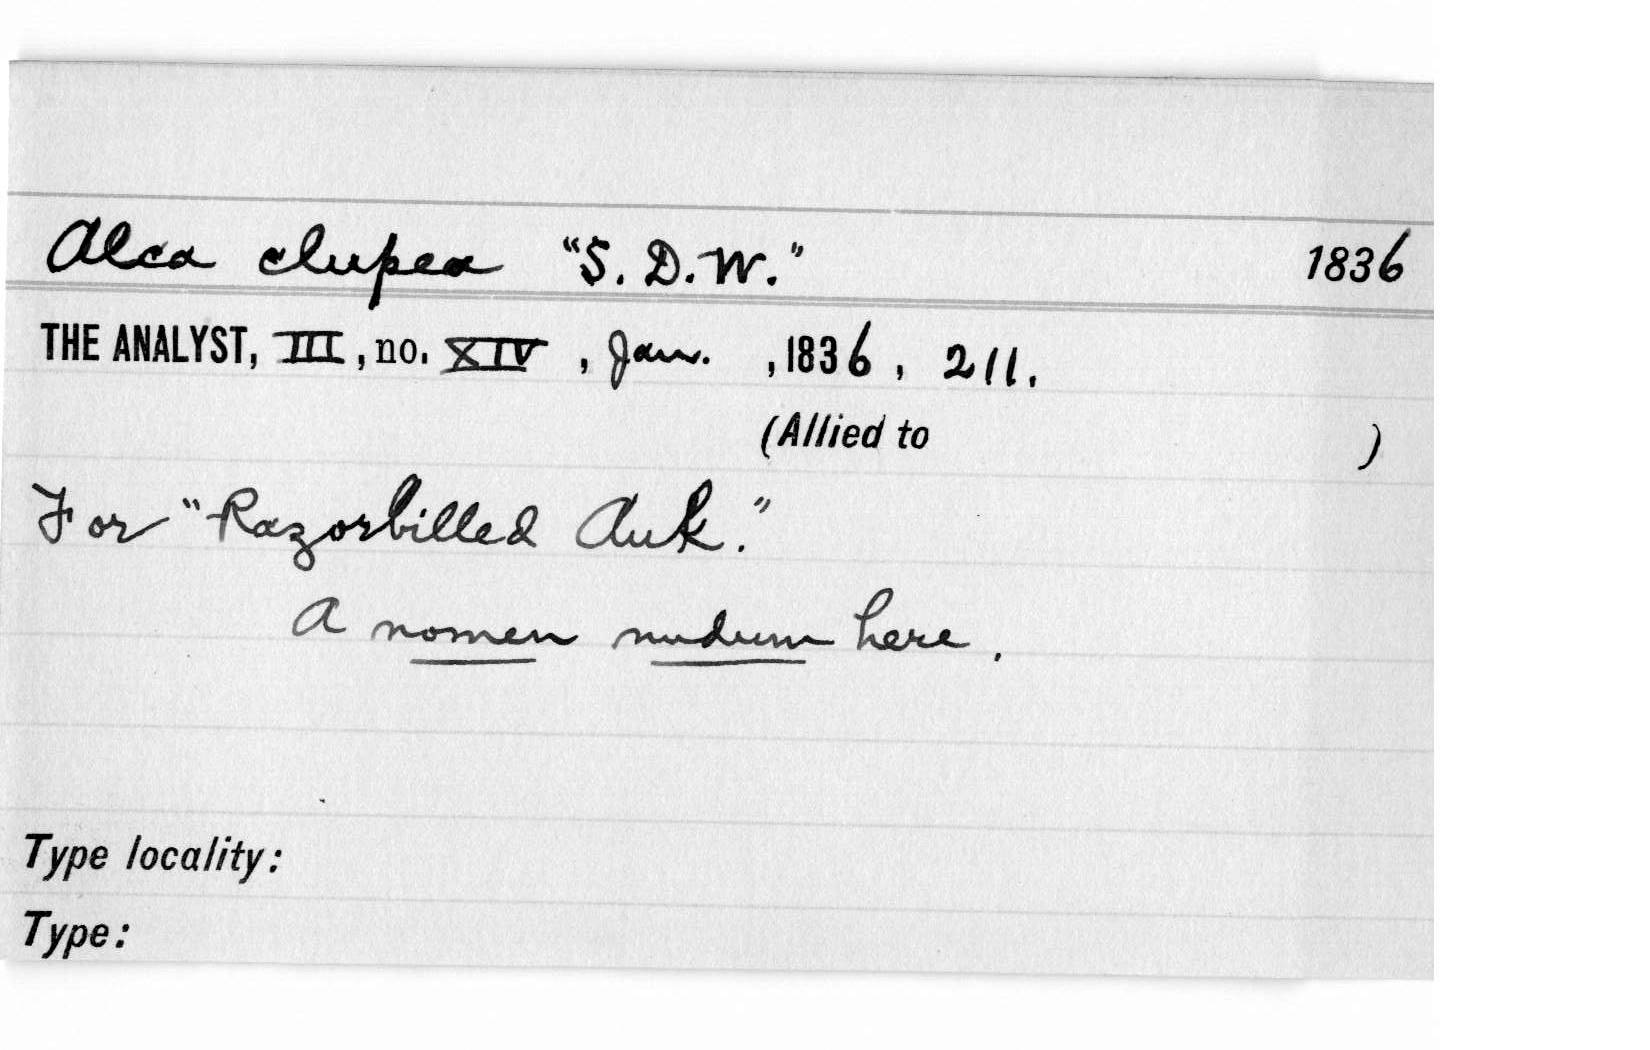 Alca clupea "S. D. W." 1836
THE ANALYST, III, no. XIV, Jan. ,1836, 211.
(Allied to )
For "Razorbilled Auk."
A nomen nudum here.
Type locality:
Type: